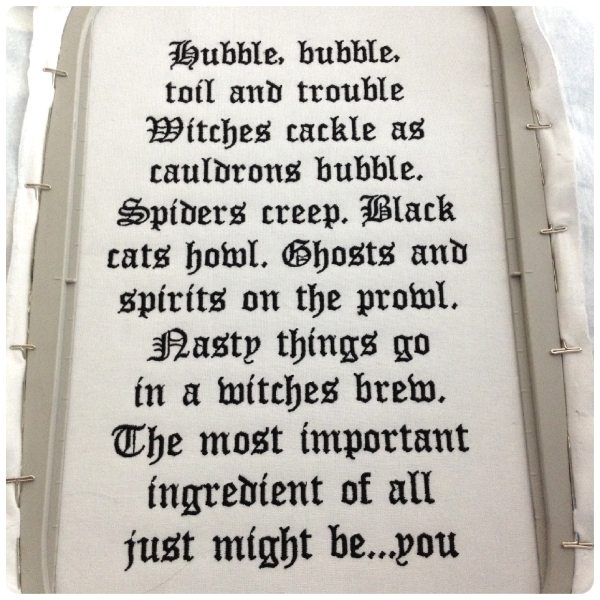 Hubble, bubble,
toil and trouble
Witches cackle as
cauldrons bubble.
Spiders creep. Black
cats howl. Ghosts and
spirits on the prowl.
Nasty things go
in a witches brew.
The most important
ingredient of all
just might be...you